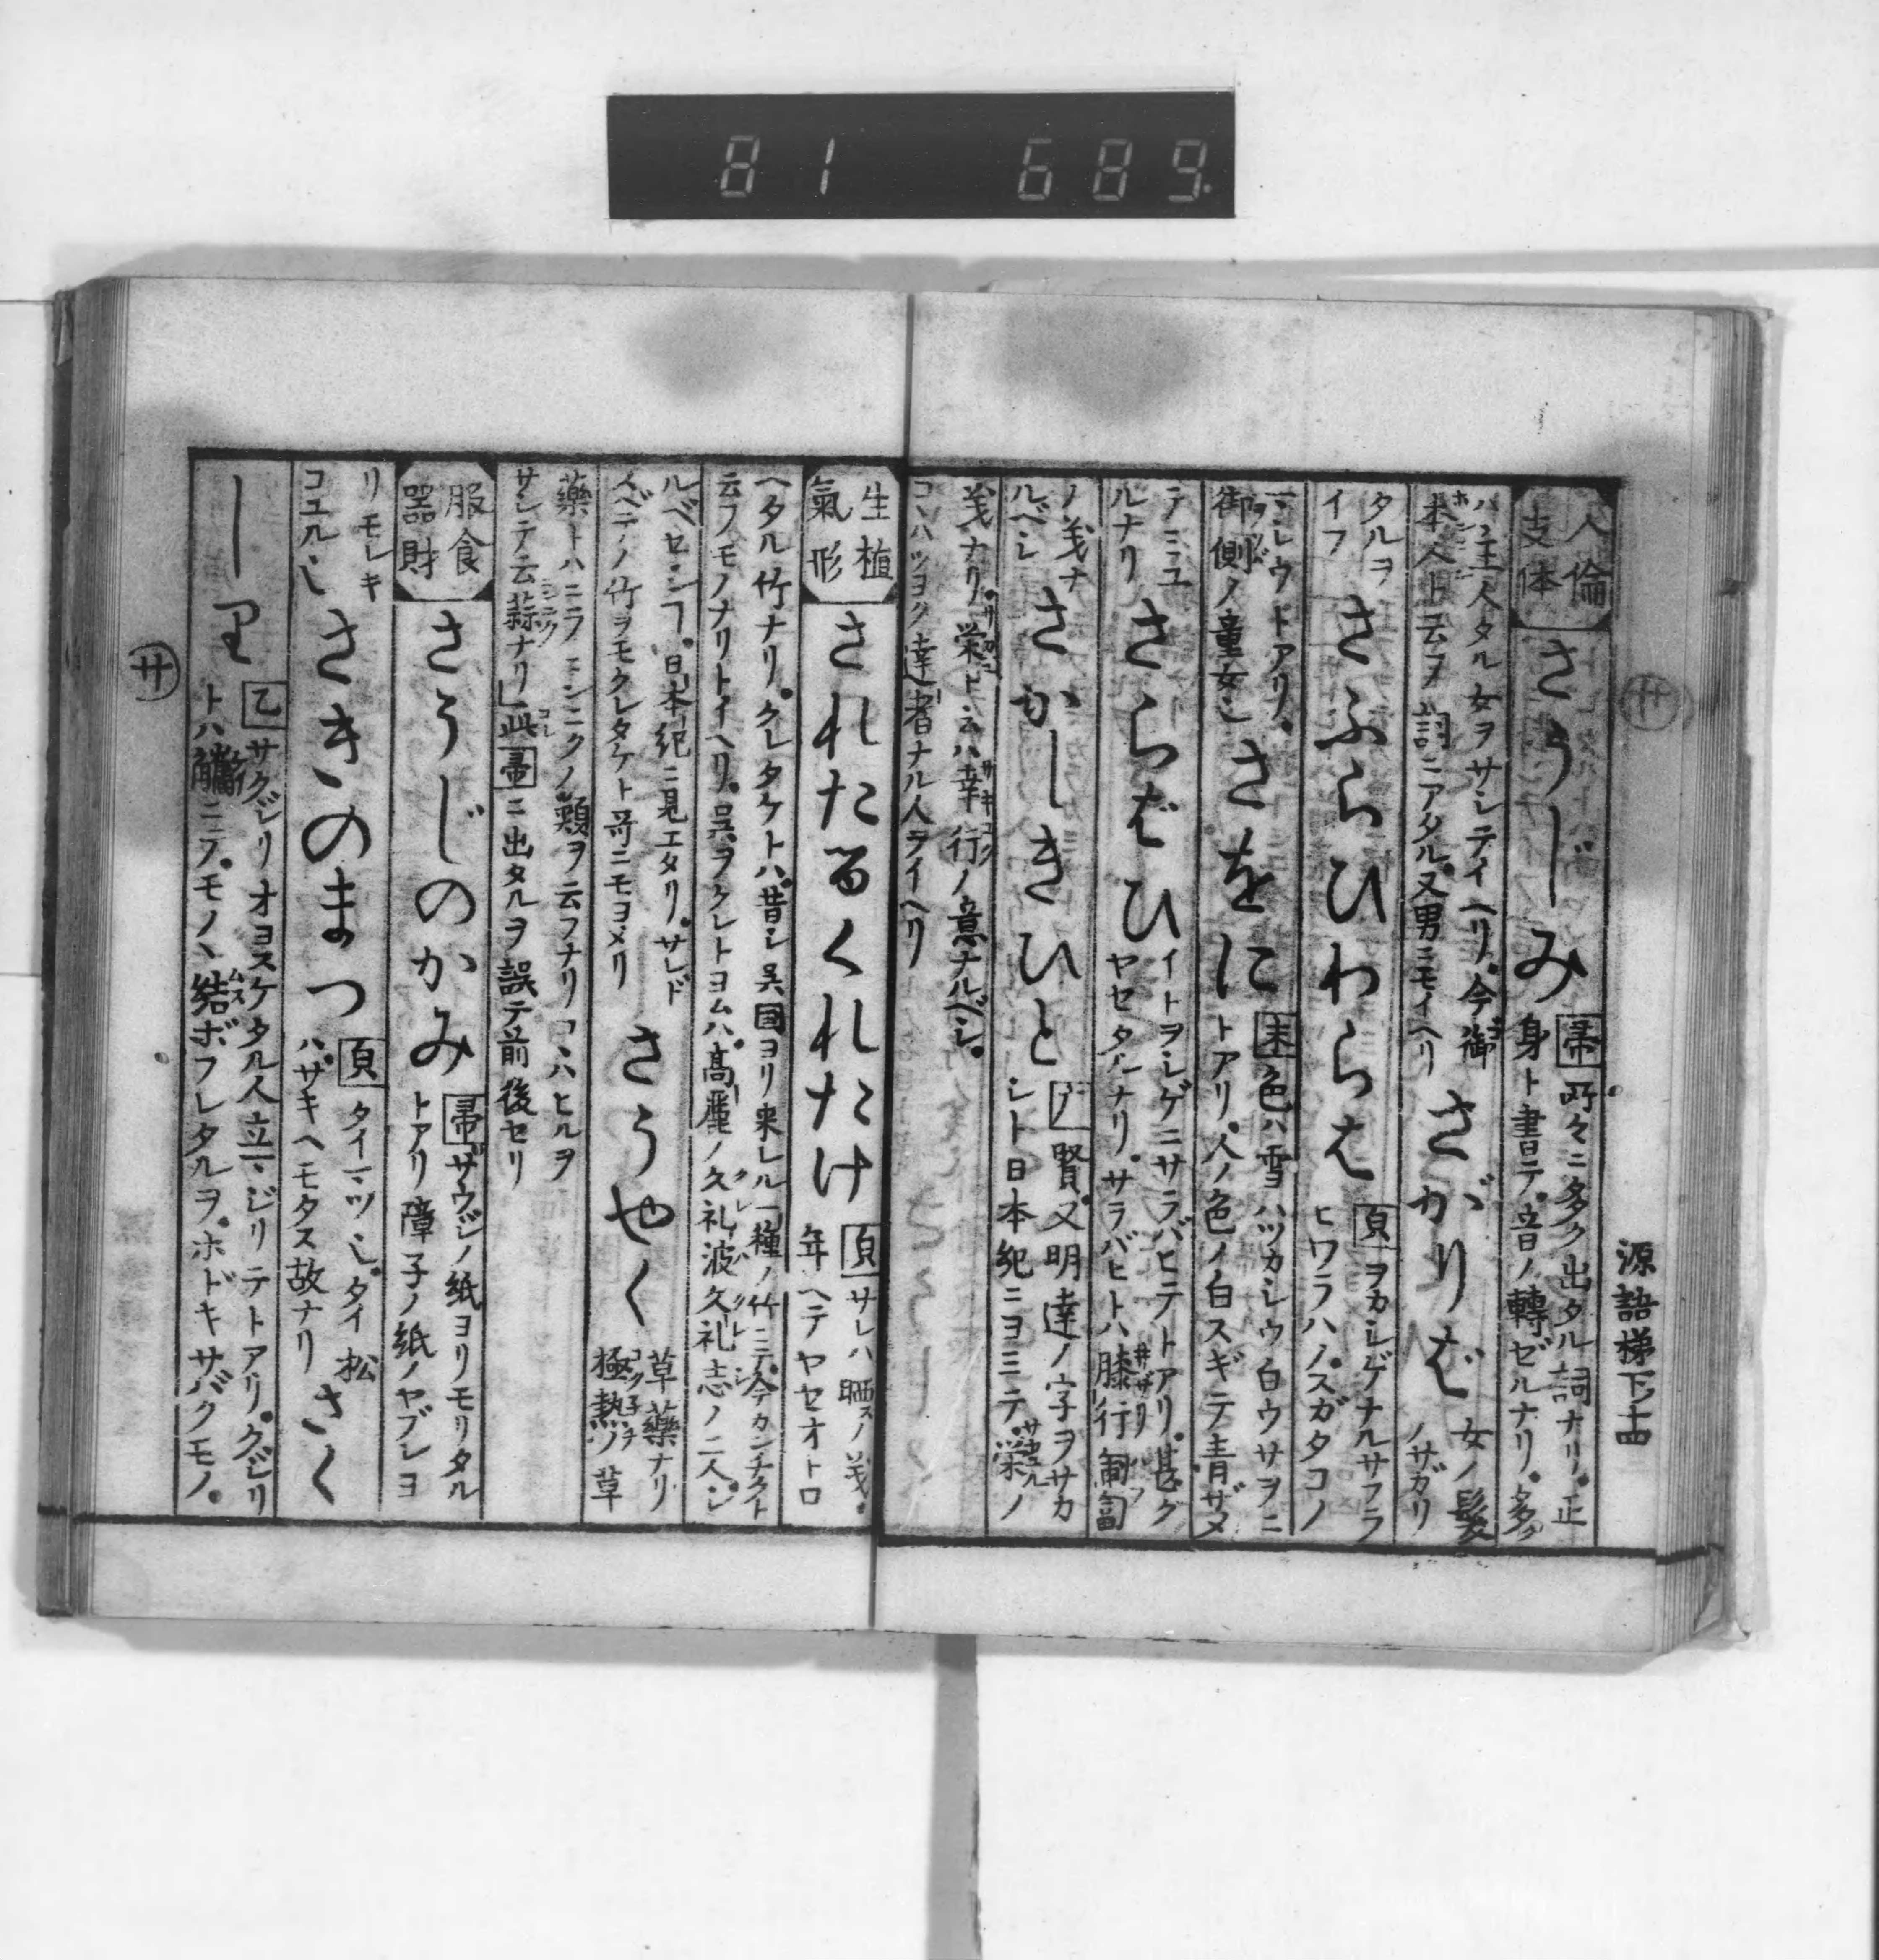 81 689
源語梯下ノ十四
サ
人倫
支体
さうじみ
帚所々ニ多ク出タル詞ナリ。正
身ト書テ。音ノ轉ゼルナリ。多ク
ハ主人タル女ヲサシテイヘリ。今御
本人ト云フ詞ニアタル。又男ニモイヘリ
さがりば
女ノ髪
ノサガリ
タルヲ
イフ
さふらひわらは
頁ヲカシゲナルサフラ
ヒワラハノ。スガタコノ
マシウトアリ。
御側ノ童女也
さをに
末色ハ雪ハヅカシウ白ウサヲニ
トアリ。人ノ色ノ白スギテ青ザメ
テミユ
ルナリ
さらばひ
イトヲシゲニサラバヒテトアリ。甚グ
ヤセタルナリ。サラバヒトハ膝行匍匐
ノ義ナ
ルベシ
さかしきひと
賢。又明達ノ字ヲサカ
シト日本紀ニヨミテ。榮ノ
義ナリ。榮ト云ハ幸行ノ意ナルベシ。
コヽハツヨク達者ナル人ヲイヘリ
生植
氣形
されたるくれたけ
頁サレハ晒ノ義。
年ヘテヤセオトロ
ヘタル竹ナリ。クレタケトハ。昔シ呉国ヨリ来レル一種ノ竹ニテ。今カンチクト
云フモノナリトイヘリ。呉ヲクレトヨムハ。高麗ノ久礼波久礼志ノ二人。シ
ルベセシフ。日本紀ニ見エタリ。サレド
スベテノ竹ヲモクレタケト哥ニモヨメリ
さうやく
草藥ナリ
極熱ノ草
藥トハニラニンニクノ類ヲ云フナリコヽハヒルヲ
サシテ云蒜ナリ此帚ニ出タルヲ誤テ前後セリ
服食
器財
さうじのかみ
帚サウジノ紙ヨリモリタル
トアリ障子ノ紙ノヤブレヨ
リモレキ
コユル也
さきのまつ
頁タイマツ也。タイ松
ハ。サキヘモタス故ナリ
さく
じり
乙サクジリオヨスケタル人立マジリテトアリ。クジリ
トハ觿ニテ。モノヽ結ボフレタルヲ。ホドキサバクモノ。
サ